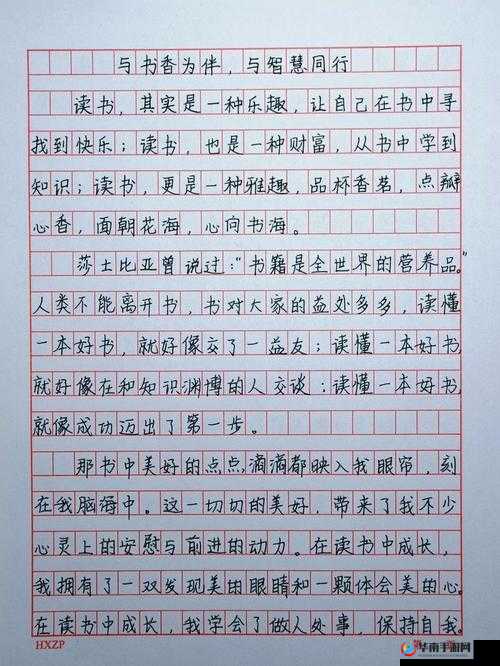 与书香为伴，与智慧同行
读书，其实是一种乐趣，让自己在书中寻
找到快乐；读书，也是一种财富，从书中学到
知识；读书，更是一种雅趣，品杯香茗，点瓣
心香，面朝花海，心向书海。
莎士比亚曾说过："书籍是全世界的营养品。"
人类不能离开书，书对大家的益处多多，读懂
一本好书，就好像交了一益友；读懂一本好书，
就好像在和知识渊博的人交谈；读懂一本好书，
就像成功迈出了第一步。
那书中美好的点点滴滴都映入我眼帘，刻
在我脑海中。这一切切的美好，带来了我不少
心灵上的安慰与前进的动力。在读书中成长，
我拥有了一双发现美的眼睛和一颗体会美的心。
在读书中成长，我学会了做人处事，保持自我。
HXZP
华南手游网